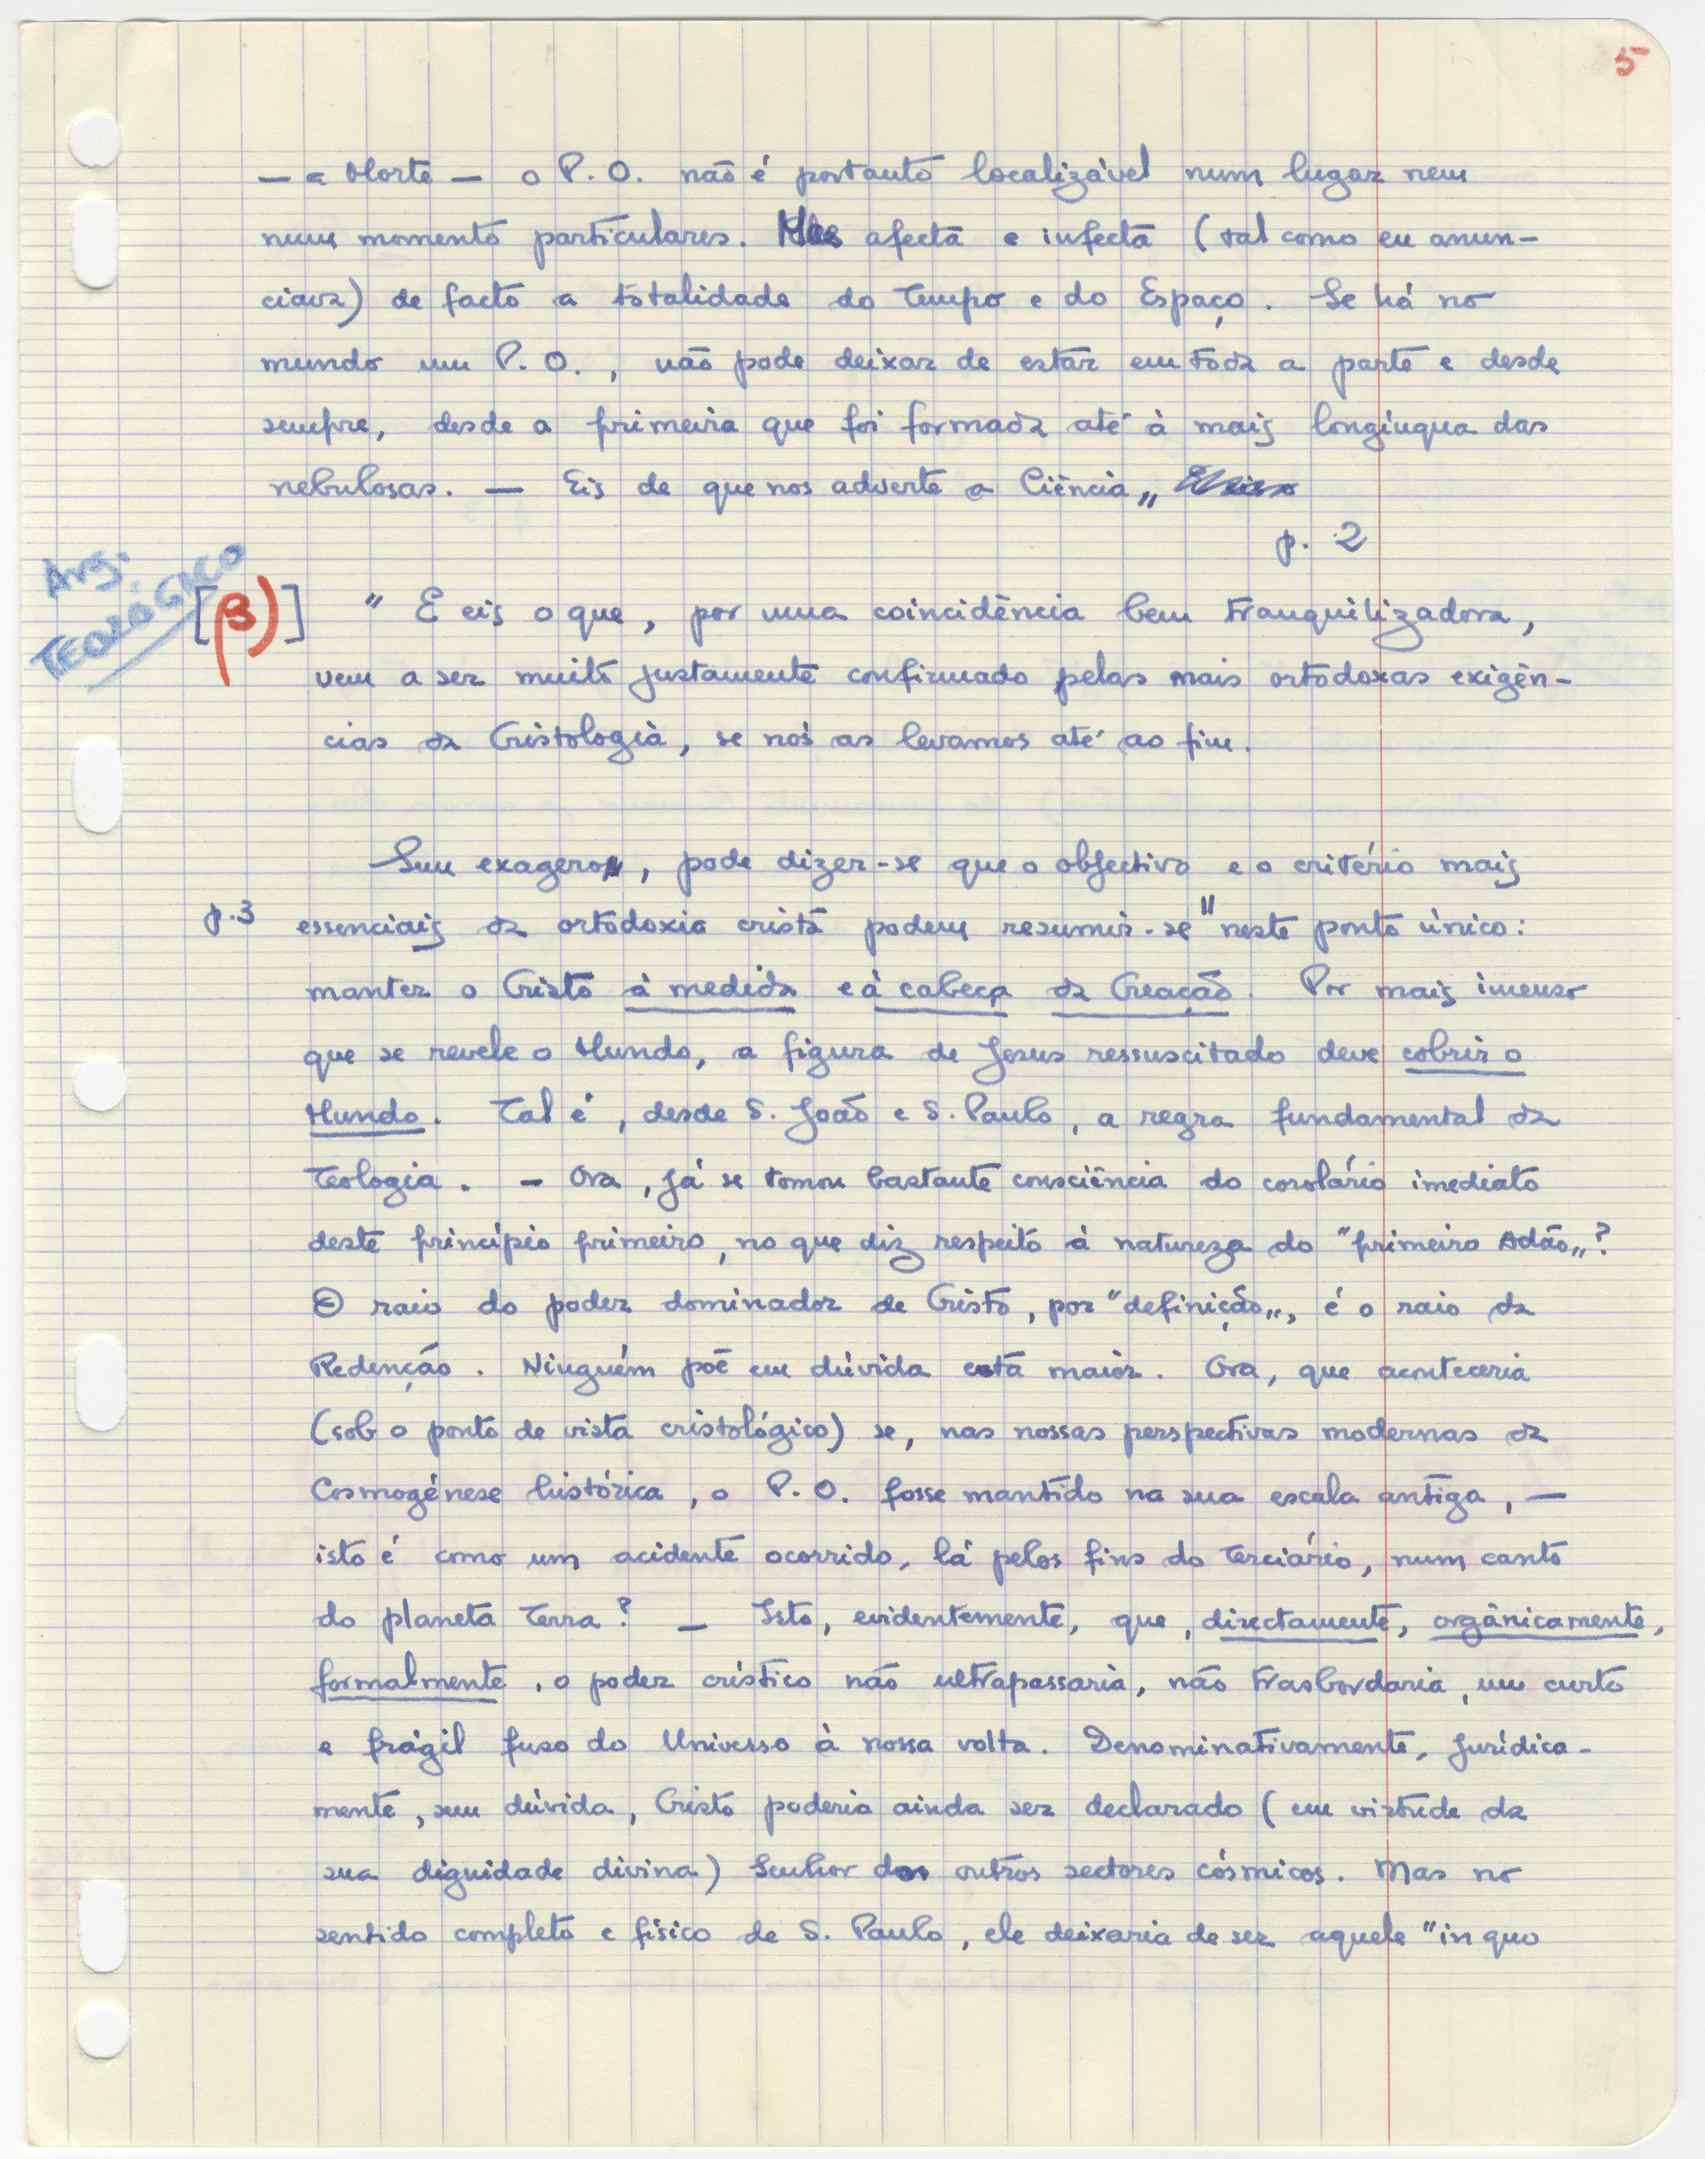 5
— a Morte — o P. O. não é portanto localizável num lugar nem
num momento particulares. Mas afecta e infecta (tal como eu anun-
ciava) de facto a totalidade do Tempo e do Espaço. Se há no
mundo um P. O., não pode deixar de estar em toda a parte e desde
sempre, desde a primeira que foi formada até à mais longínqua das
nebulosas. — Eis de que nos adverte a Ciência„
p. 2
Arg.
TEOLÓGICO
[β)]
" E eis o que, por uma coincidência bem tranquilizadora,
vem a ser muito justamente confirmado pelas mais ortodoxas exigên-
cias da Cristologia, se nós as levamos até ao fim.
Sem exagero, pode dizer-se que o objectivo e o critério mais
p.3
essenciais da ortodoxia cristã podem resumir-se " neste ponto único:
manter o Cristo à medida e à cabeça da Creação. Por mais imenso
que se revele o Mundo, a figura de Jesus ressuscitado deve cobrir o
Mundo. Tal é, desde S. João e S. Paulo, a regra fundamental da
Teologia. — Ora, já se tomou bastante consciência do corolário imediato
deste princípio primeiro, no que diz respeito à natureza do "primeiro Adão„?
O raio do poder dominador de Cristo, por "definição„, é o raio da
Redenção. Ninguém põe em dúvida esta maior. Ora, que aconteceria
(sob o ponto de vista cristológico) se, nas nossas perspectivas modernas da
Cosmogénese histórica, o P. O. fosse mantido na sua escala antiga, —
isto é como um acidente ocorrido, lá pelos fins do Terciário, num canto
do planeta Terra? — Isto, evidentemente, que, directamente, orgânicamente,
formalmente, o poder crístico não ultrapassaria, não trasbordaria, um curto
e frágil fuso do Universo à nossa volta. Denominativamente, jurídica-
mente, sem dúvida, Cristo poderia ainda ser declarado (em virtude da
sua dignidade divina) Senhor dos outros sectores cósmicos. Mas no
sentido completo e físico de S. Paulo, ele deixaria de ser aquele "in quo